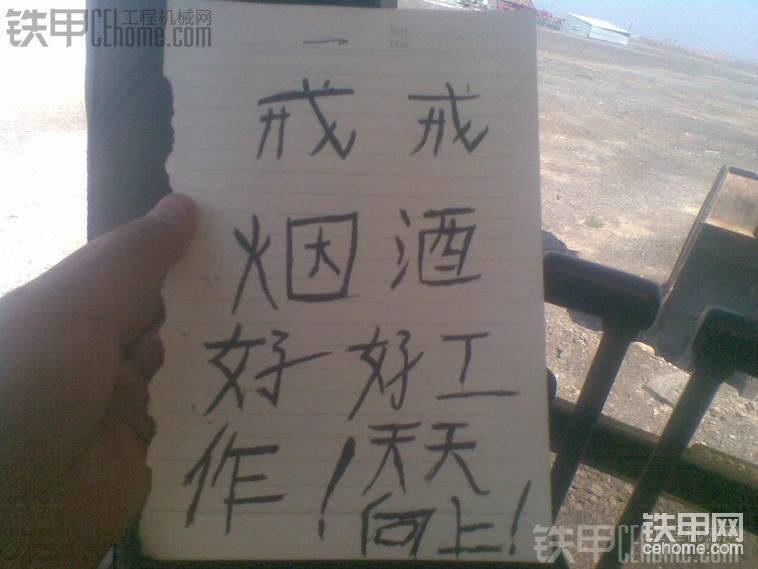 铁甲 CEhome.com 工程机械网
一
戒 戒
烟 酒
好 好 工
作！天天
向上！
铁甲 铁甲网
cehome.com